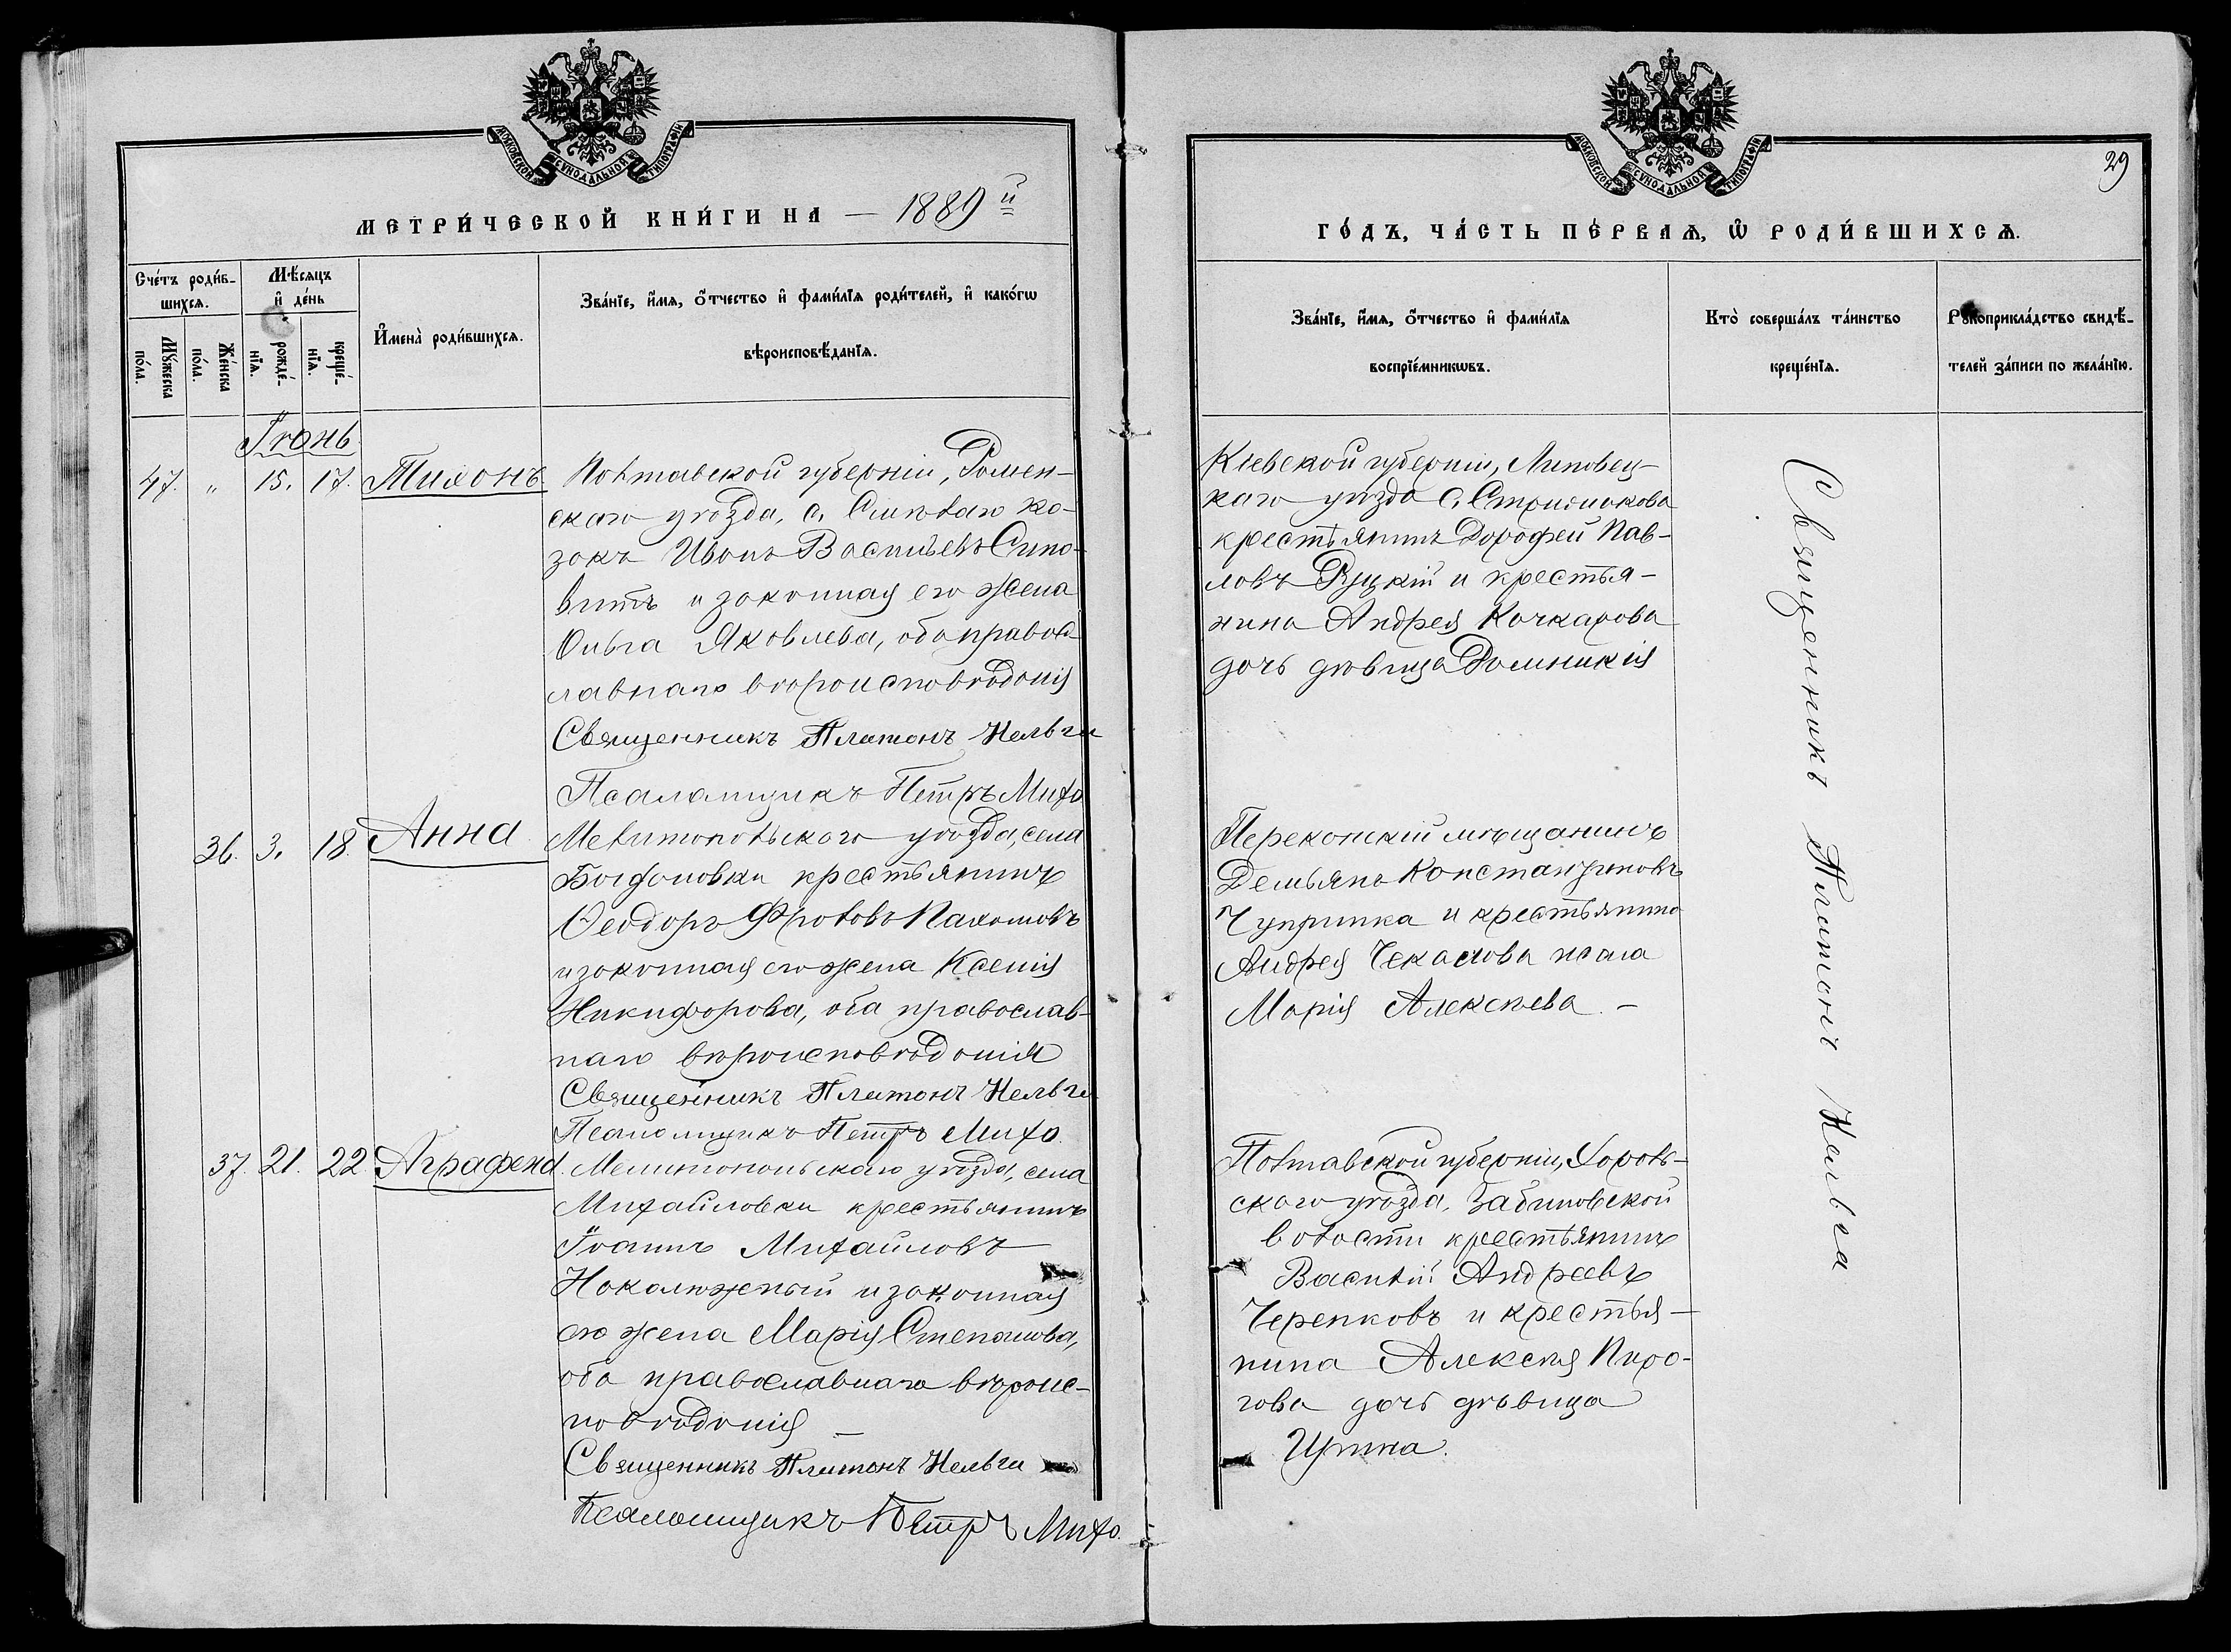 МОСКОВСКОЙ СУНОДАЛЬНОЙ ТИПОГРАФІИ
МЕТРИ́ЧЕСКОЙ КНИ́ГИ НА — 1889 й
Сче́тъ роди́в-
шихсѧ.
Мѣ́сяцъ
и҆ де́нь
Мꙋ́жеска
по́ла.
Же́нска
по́ла.
рожде́-
нїѧ.
креще́-
нїѧ.
И҆мена̀ роди́вшихсѧ.
Зва́нїе, и҆́мѧ, ѻ҆́тчество и҆ фами́лїѧ роди́телей, и҆ како́гѡ
вѣроисповѣ́данїѧ.
Іюнь
47. " 15. 17. Тихонъ
Полтавской губерніи, Ромен-
скаго уѣзда, с. Смѣлаго ко-
закъ Иванъ Васильевъ
и законная его жена
Ольга Яковлева, оба правос
лавнаго вѣроисповѣданія
Священникъ Платонъ
Псаломщикъ Петръ Михо
36. 3. 18. Анна
Мелитопольскаго уѣзда, села
Богдановки крестьянинъ
Ѳеодоръ Фроловъ Пахомовъ
и законная его жена Ксенія
Никифорова, оба православ-
наго вѣроисповѣданія
Священникъ Платонъ
Псаломщикъ Петръ Михо.
37. 21. 22. Аграфена.
Мелитопольскаго уѣзда, села
Михайловки крестьянинъ
Іоаннъ Михайловъ
и законная
его жена Марія Степанова,
оба православнаго вѣроис-
повѣданія —
Священникъ Платонъ
Псаломщикъ Петръ Михо.
МОСКОВСКОЙ СУНОДАЛЬНОЙ ТИПОГРАФІИ
29
ГО́ДЪ, ЧА́СТЬ ПЕ́РВАѦ, Ѡ҆ РОДИ́ВШИХСѦ.
Зва́нїе, и҆́мѧ, ѻ҆́тчество и҆ фами́лїѧ
воспрїе́мникѡвъ.
Кто̀ соверша́лъ та́инство
креще́нїѧ.
Рꙋкоприкла́дство свидѣ́-
телей за́писи по жела́нїю.
Кіевской губерніи, Липовец-
каго уѣзда с.
крестьянинъ Дорофей Пав-
ловъ Руцкій и крестья-
нина Андрея Кочкарова
дочь дѣвица Домникія
Перекопскій мѣщанинъ
Демьянъ Константиновъ
Чупринка и крестьянина
Андрея Чекалова жена
Марія Алексѣева. —
Полтавской губерніи, Хороль-
скаго уѣзда,
волости крестьянинъ
Василій Андреевъ
Черепковъ и крестья-
нина Алексѣя Пиро-
гова дочь дѣвица
Ирина.
Священникъ Платонъ